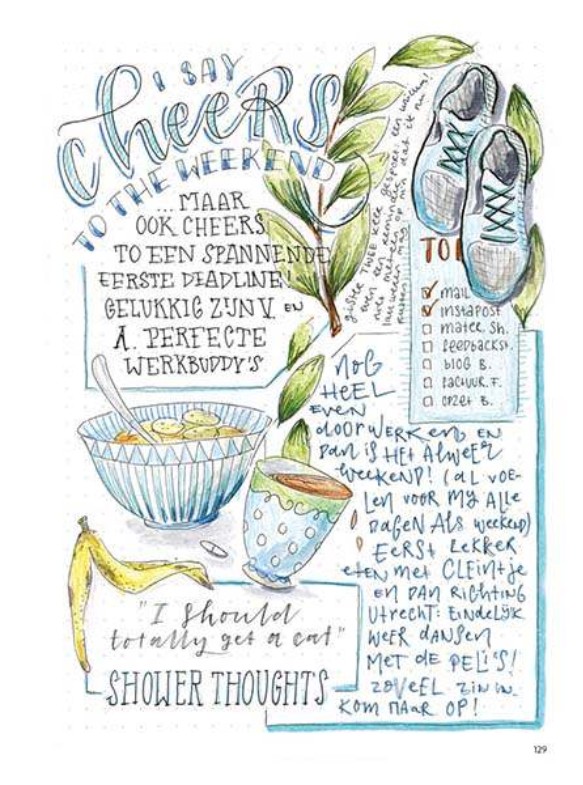 I SAY
cheers
TO THE WEEKEND
...MAAR
OOK CHEERS
TO EEN SPANNENDE
EERSTE DEADLINE!
GELUKKIG ZIJN V. EN
A. PERFECTE
WERKBUDDY'S
TO
mail
instapost
mater. sh.
feedbackst.
blog B.
factuur. F.
opzet B.
NOG
HEEL
EVEN
doorwerken EN
dan is HET ALWEER
weekend! (AL VOE-
Len VOOR MY ALLE
DAGEN ALS weekend)
EERSt LEKKER
eten met CLEINtje
en DAN RICHTING
UTRECHT: EINDELIJK
WEER dANSEN
MET de PELI'S!
zoVEEL ZIN IN.
KOM MAAR OP!
"I should
totally get a cat"
SHOWER THOUGHTS
129